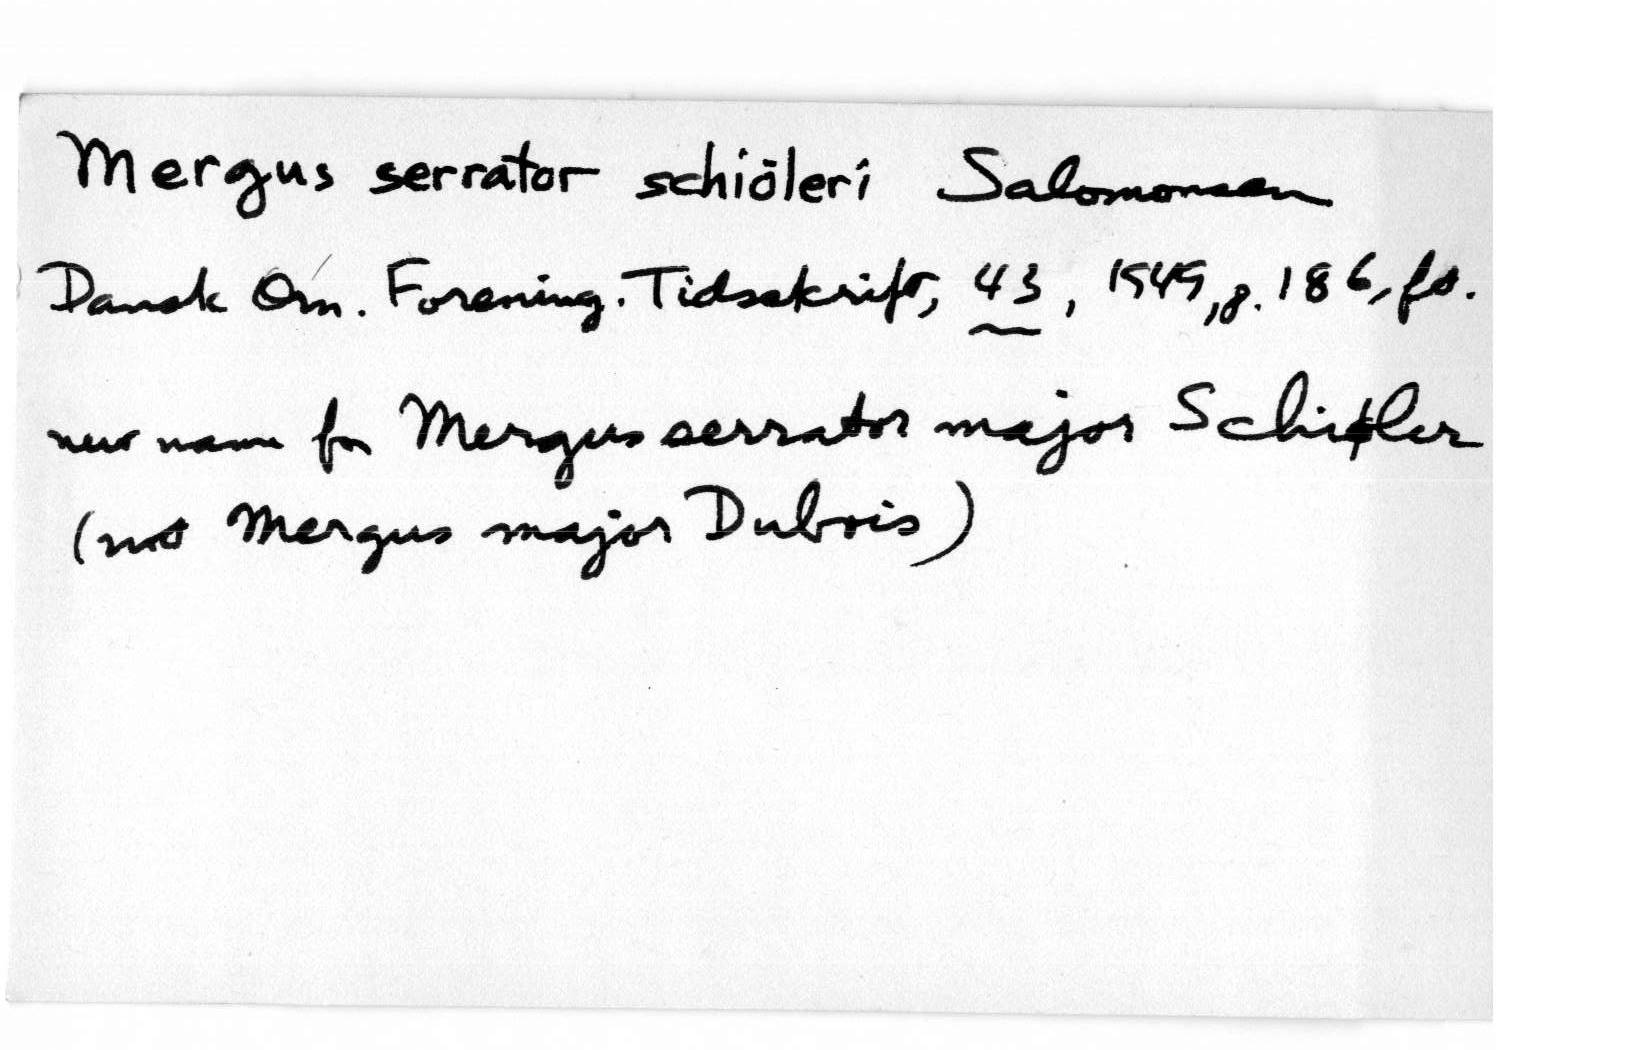 Mergus serrator schiöleri Salomonsen
Dansk Orn. Forening. Tidsskrift, 43, 1949, p. 186, ft.
new name for Mergus serrator major Schiøler
(not Mergus major Dubois)